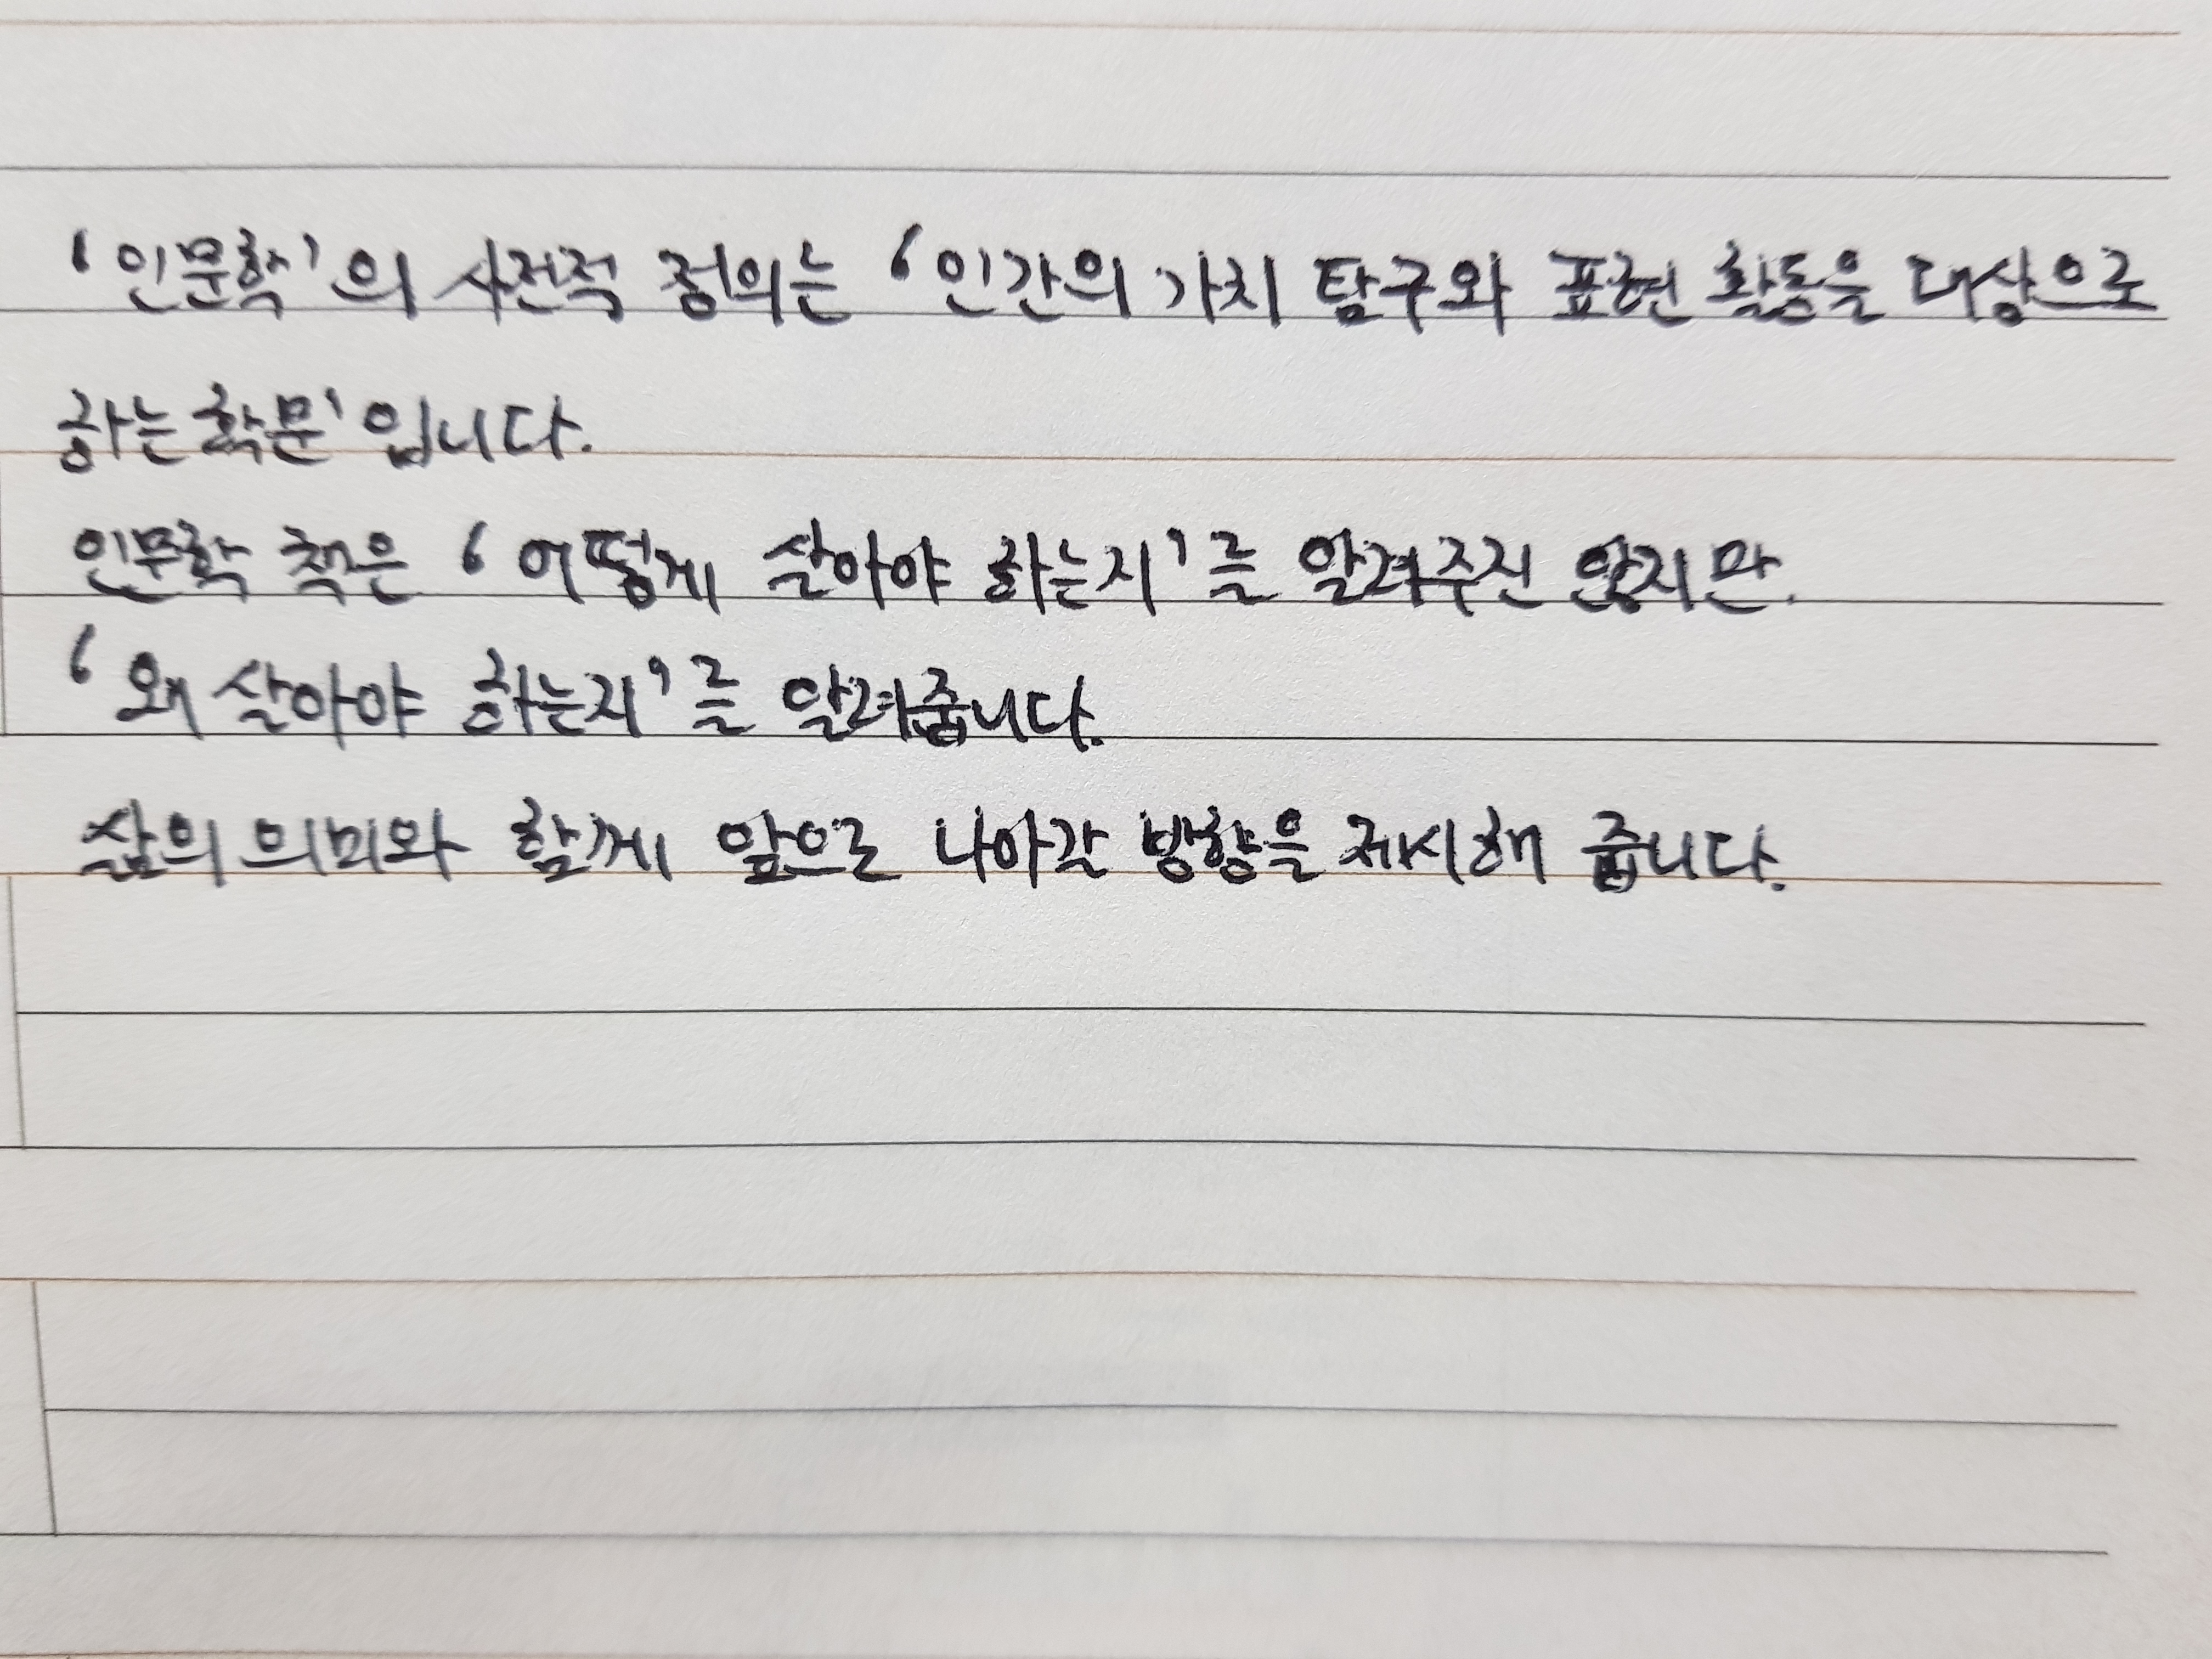 '인문학'의 사전적 정의는 '인간의 가치 탐구와 표현 활동을 대상으로
하는 학문' 입니다.
인문학 책은 '어떻게 살아야 하는지'를 알려주진 않지만.
'왜 살아야 하는지'를 알려줍니다.
삶의 의미와 함께 앞으로 나아갈 방향을 제시해 줍니다.